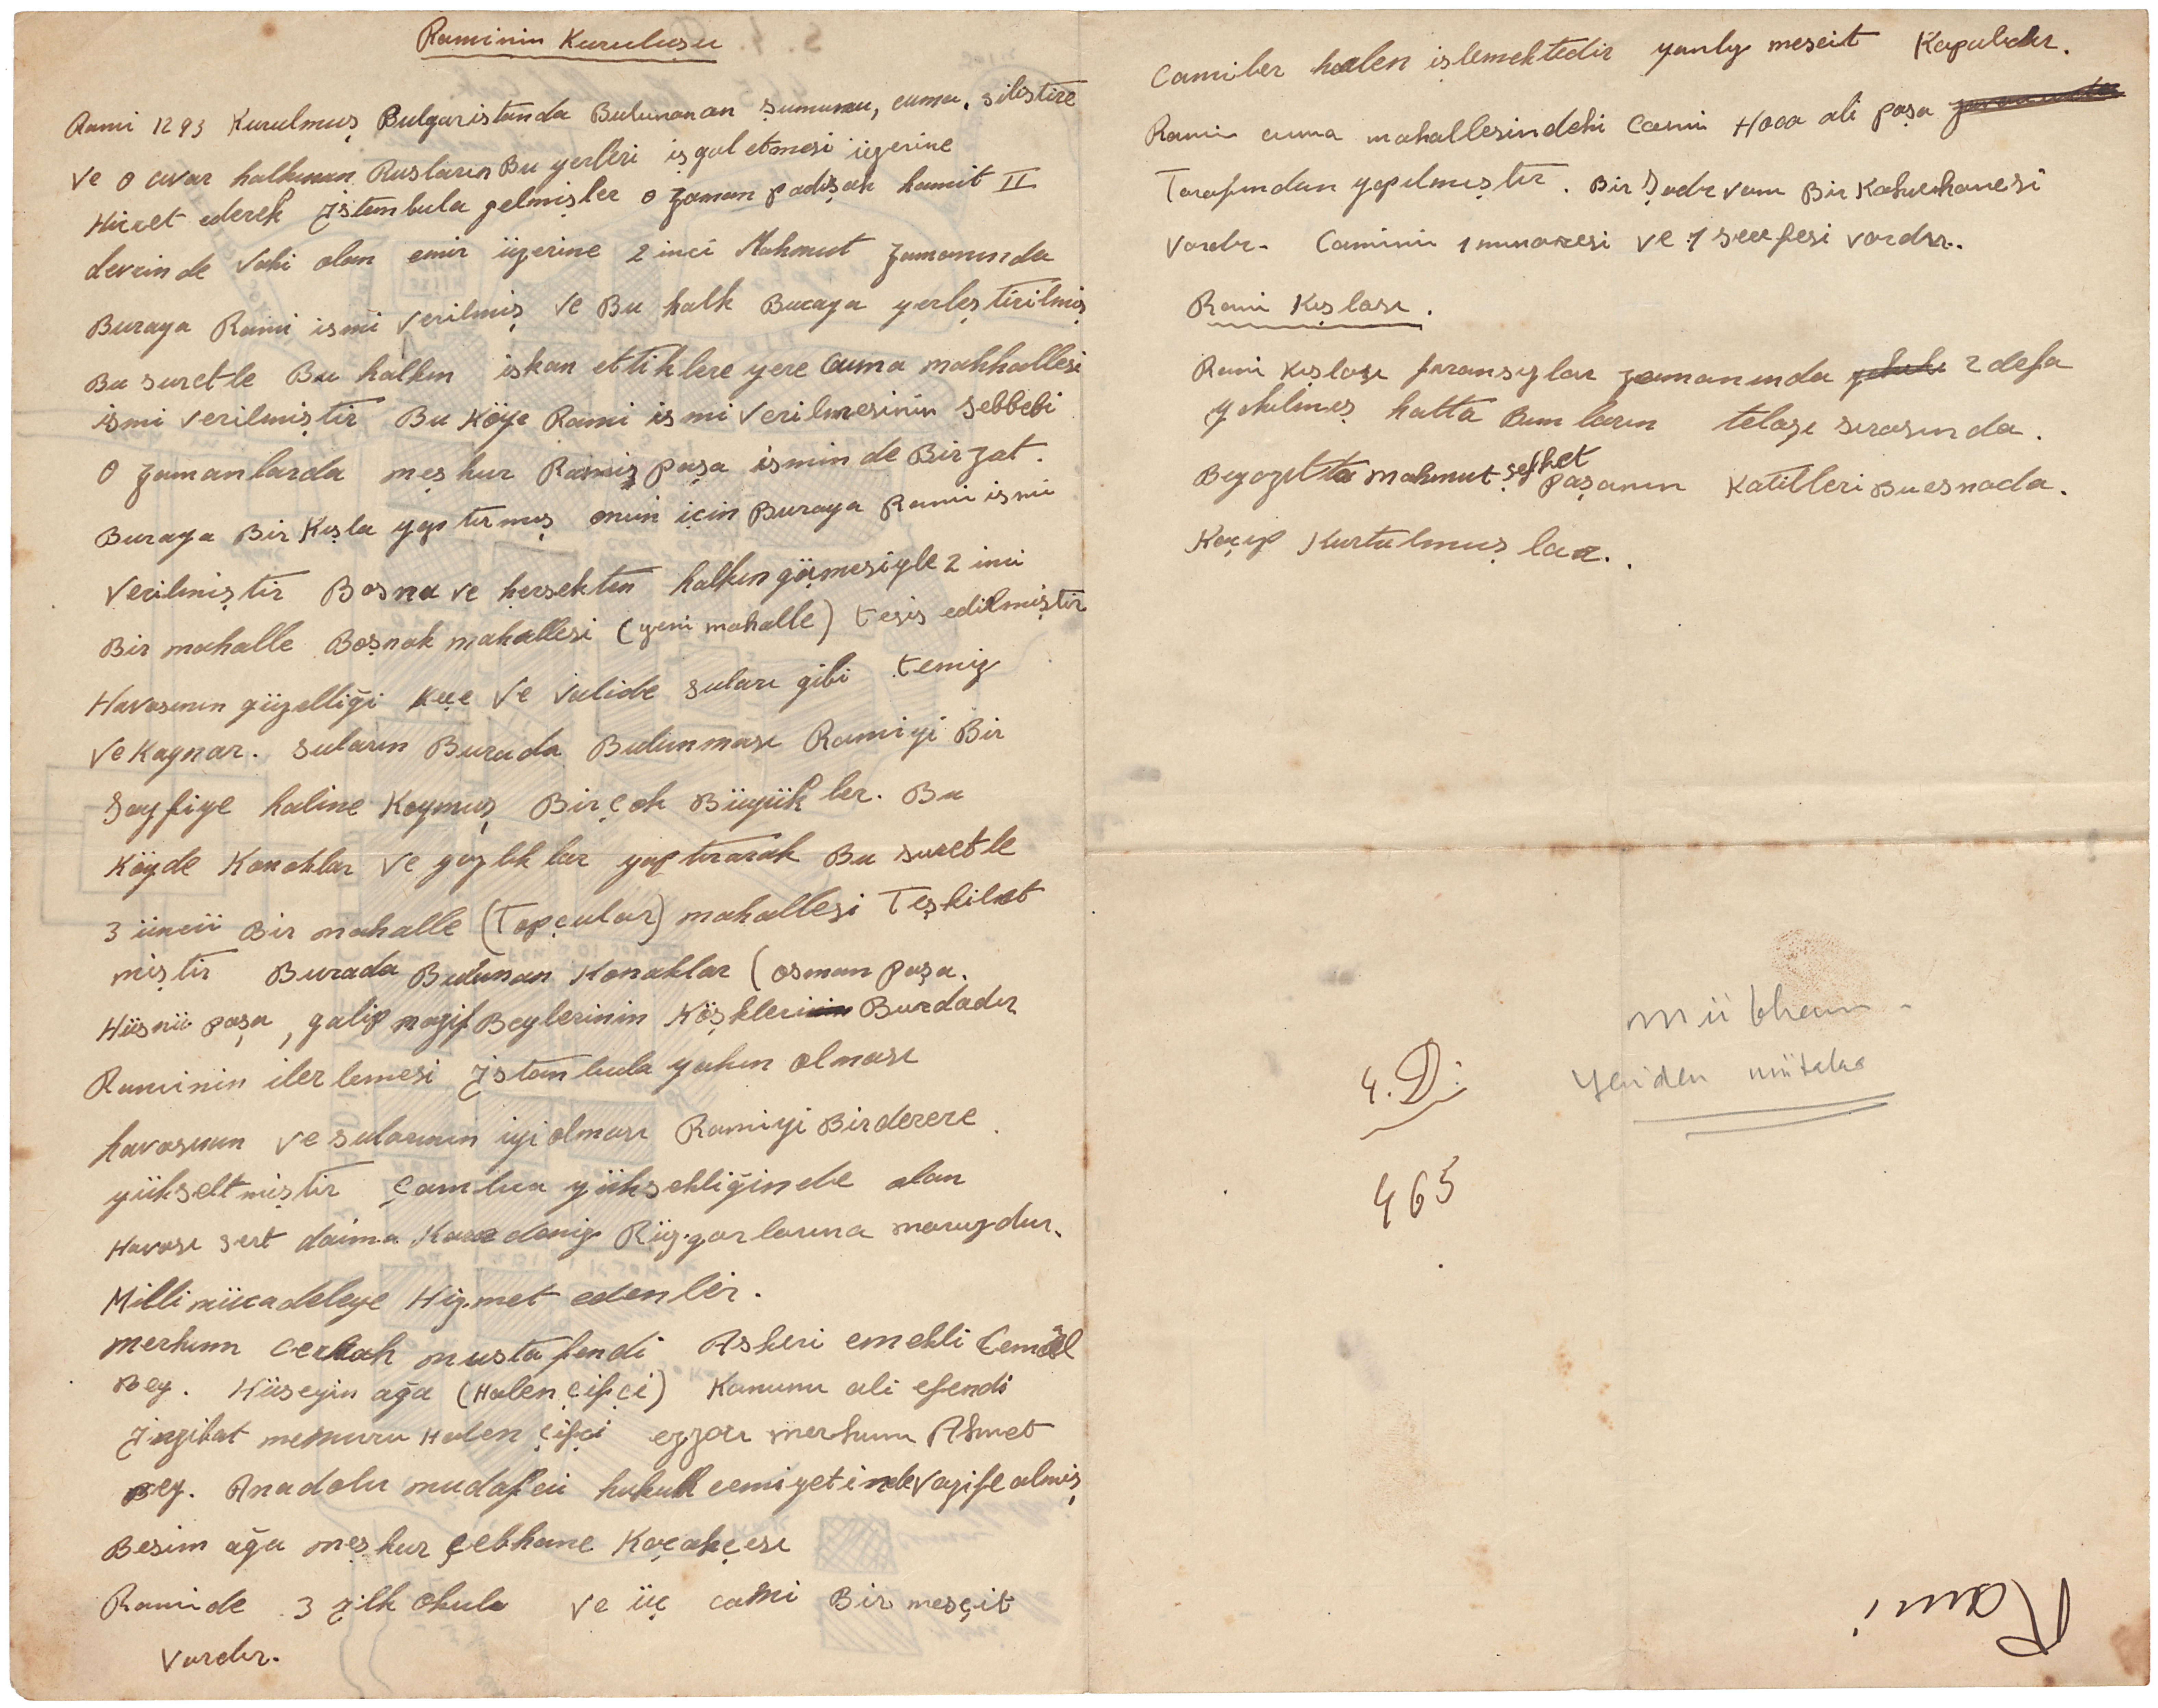 Raminin Kuruluşu
Rami 1293 Kurulmuş Bulgaristanda Bulunanan şumunu, cuma, silistire
ve o civar halkının Rusların Bu yerleri işgal etmesi üzerine
Hicret ederek İstanbula gelmişler o zaman padişah hamit II
devrinde Vaki olan emir üzerine 2 inci Mahmut zamanında
Buraya Rami ismi verilmiş ve Bu halk Buraya yerleştirilmiş
Bu suretle Bu halkın iskan ettiklere yere Cuma mahhallesi
ismi verilmiştir Bu Köye Rami ismi verilmesinin sebbebi
O zamanlarda meşhur Ramiş paşa isminde Bir zat.
Buraya Bir Kışla yaptırmış onun için Buraya Rami ismi
verilmiştir Bosna ve hersekten halkın göçmesiyle 2 inci
Bir mahalle Boşnak mahallesi (yeni mahalle) tesis edilmiştir
Havasının güzelliği ve valide suları gibi temiz
ve Kaynar. suların Burada Bulunması Ramiyi Bir
Sayfiye haline Koymuş Birçok Büyükler. Bu
Köyde Konaklar ve yazlıklar yaptırarak Bu suretle
3 üncü Bir mahalle (Topçular) mahallesi Teşkilet
miştir Burada Bulunan Konaklar (osman paşa.
Hüsnü paşa, galip nazif Beylerinin Köşkleri Burdadır
Raminin ilerlemesi İstanbula yakın olması
havasının ve sularının iyi olması Ramiyi Birderere
yükseltmiştir Çamlıca yüksekliğinde olan
Havası sert daima Karadeniz Rüzgarlarına maruzdur.
Milli mücadeleye Hizmet edenler.
merhum Cerrah mustafendi Askeri emekli Cemal
Bey. Hüseyin ağa (Halen çifçi) Kanunu ali efendi
İnzibat memuru Halen çifçi ezzacı merhum Ahmet
Bey. Anadolu mudafei hukuk cemiyetinde vazife almış
Besim ağa meşhur çebhane Kaçakçısı
Ramide 3 ilk okulu ve üç cami Bir mesçit
Vardır.
Camiler halen işlemektedir yanlız mescit Kapalıdır.
Rami cuma mahallesindeki Cami Hoca ali paşa
Tarafından yapılmıştır. Bir Şadırvanı Bir Kahvehanesi
Vardır. Caminin 1 minaresi ve 1 şerefesi vardır.
Rami Kışlası.
Rami Kışlası fıransızlar zamanında 2 defa
yıkılmış hatta Bunların telaşı sırasında.
Beyazıtta mahmut şefket paşanın Katilleri Bu esnada.
Kaçıp Kurtulmuşlar.
Mübhem
Yeniden mütalaa
4. D:
465
Rami